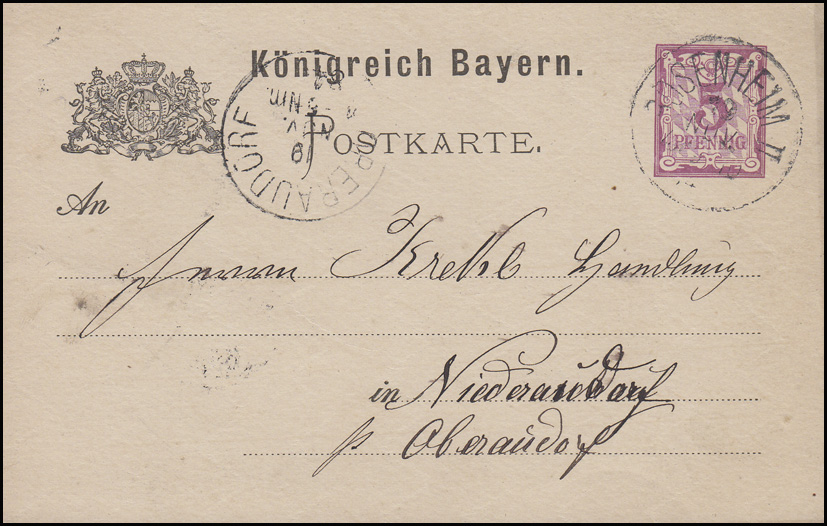 Königreich Bayern.
POSTKARTE.
5
PFENNIG
ROSENHEIM II
OBERAUDORF
An
Herrn Krekl Handlung
in Niederaudorf
p Oberaudorf